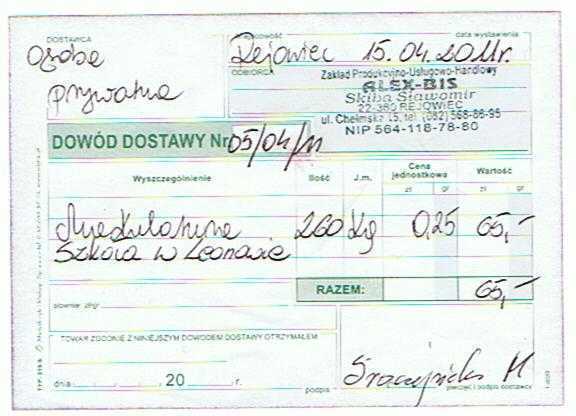 DOSTAWCA
osoba
prywatna
miejscowość
data wystawienia
Rejowiec 15.04.2011r.
ODBIORCA
Zakład Produkcyjno-Usługowo-Handlowy
ALEX-BIS
Skiba Sławomir
22-360 REJOWIEC
ul. Chełmska 15, tel. (082) 568-86-95
NIP 564-118-78-80
DOWÓD DOSTAWY Nr 05/04/11
Wyszczególnienie Ilość J.m. Cena jednostkowa Wartość
zł gr zł gr
260 kg 0,25 65,-
Szkoła w Leonowie
RAZEM: 65,-
słownie zł/gr
TOWAR ZGODNIE Z NINIEJSZYM DOWODEM DOSTAWY OTRZYMAŁEM
dnia 20 r.
podpis
pieczęć i podpis dostawcy